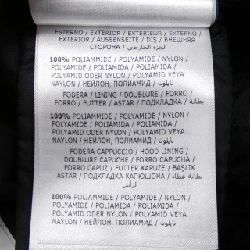 ESTERNO / EXTERIOR / EXTERIEUR / EXTERNO /
EXTERIOR / AUSSENSEITE / DIS / ВНЕШНЯЯ
СТОРОНА /
100% POLIAMMIDE / POLYAMIDE / NYLON /
POLYAMIDE / POLIAMIDA / POLIAMIDA /
POLYAMID ODER NYLON / POLYAMID VEYA
NAYLON / НЕЙЛОН, ПОЛИАМИД / نايلون
FODERA / LINING / DOUBLURE / FORRO /
FORRO / FUTTER / ASTAR / ПОДКЛАДКА / بطانة /
100% POLIAMMIDE / POLYAMIDE / NYLON /
POLYAMIDE / POLIAMIDA / POLIAMIDA /
POLYAMID ODER NYLON / POLYAMID VEYA
NAYLON / НЕЙЛОН, ПОЛИАМИД / نايلون
FODERA CAPPUCCIO / HOOD LINING /
DOUBLURE CAPUCHE / FORRO CAPUCHA /
FORRO CAPUZ / FUTTER KAPUZE / BASLIK
ASTAR / ПОДКЛАДКА КАПЮШОНА / بطانة غطاء
الرأس /
100% POLIAMMIDE / POLYAMIDE / NYLON /
POLYAMIDE / POLIAMIDA / POLIAMIDA /
POLYAMID ODER NYLON / POLYAMID VEYA
NAYLON / НЕЙЛОН, ПОЛИАМИД / نايلون